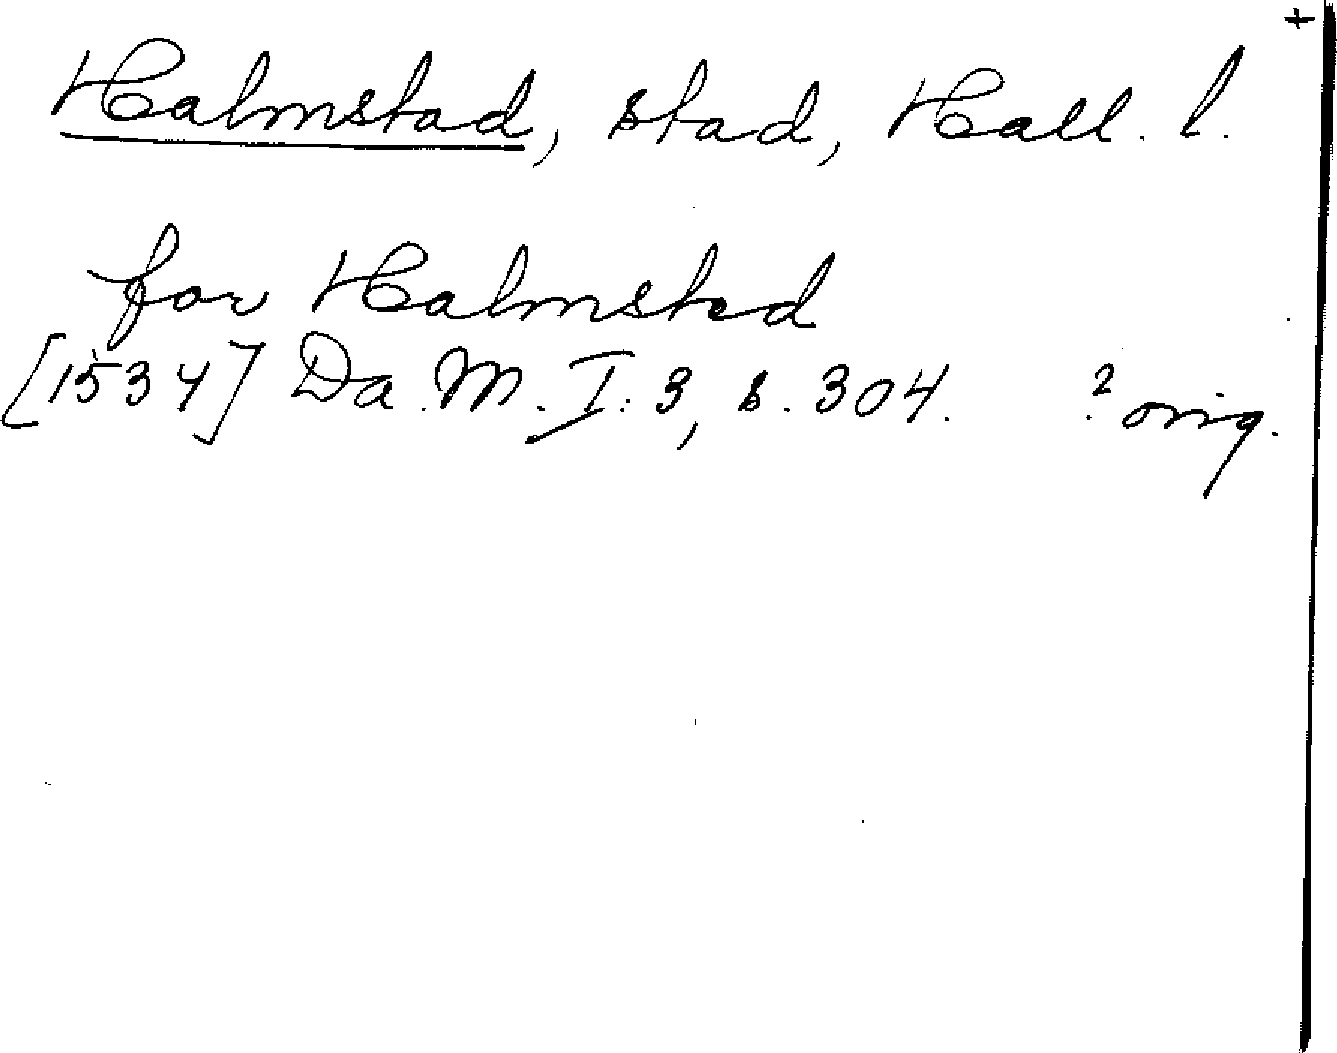 +
Halmstad, stad, Hall. l.
for Halmsted
[1534] Da. M. I: 3, s. 304. ? orig.